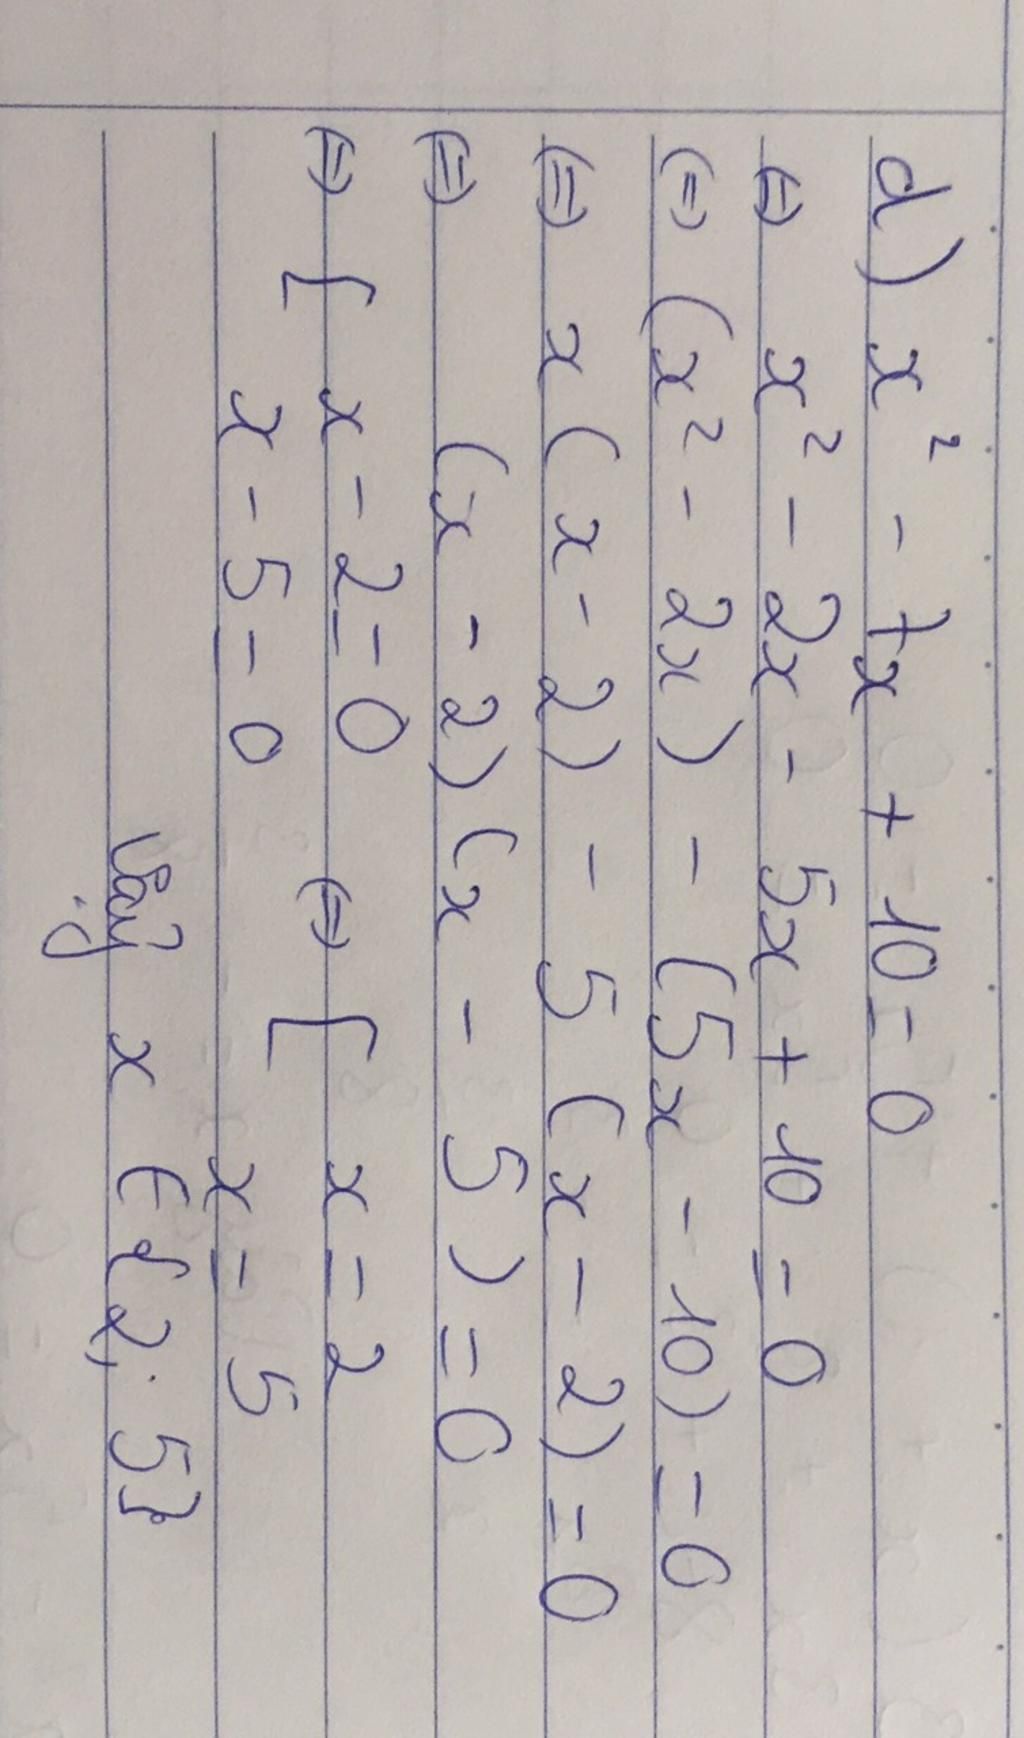 d) x² - 7x + 10 = 0
⇔ x² - 2x - 5x + 10 = 0
(=) (x² - 2x) - (5x - 10) = 0
⇔ x(x - 2) - 5(x - 2) = 0
⇔ (x - 2)(x - 5) = 0
⇔ [ x - 2 = 0 ⇔ [ x = 2
x - 5 = 0 x = 5
Vậy x ∈ {2; 5}